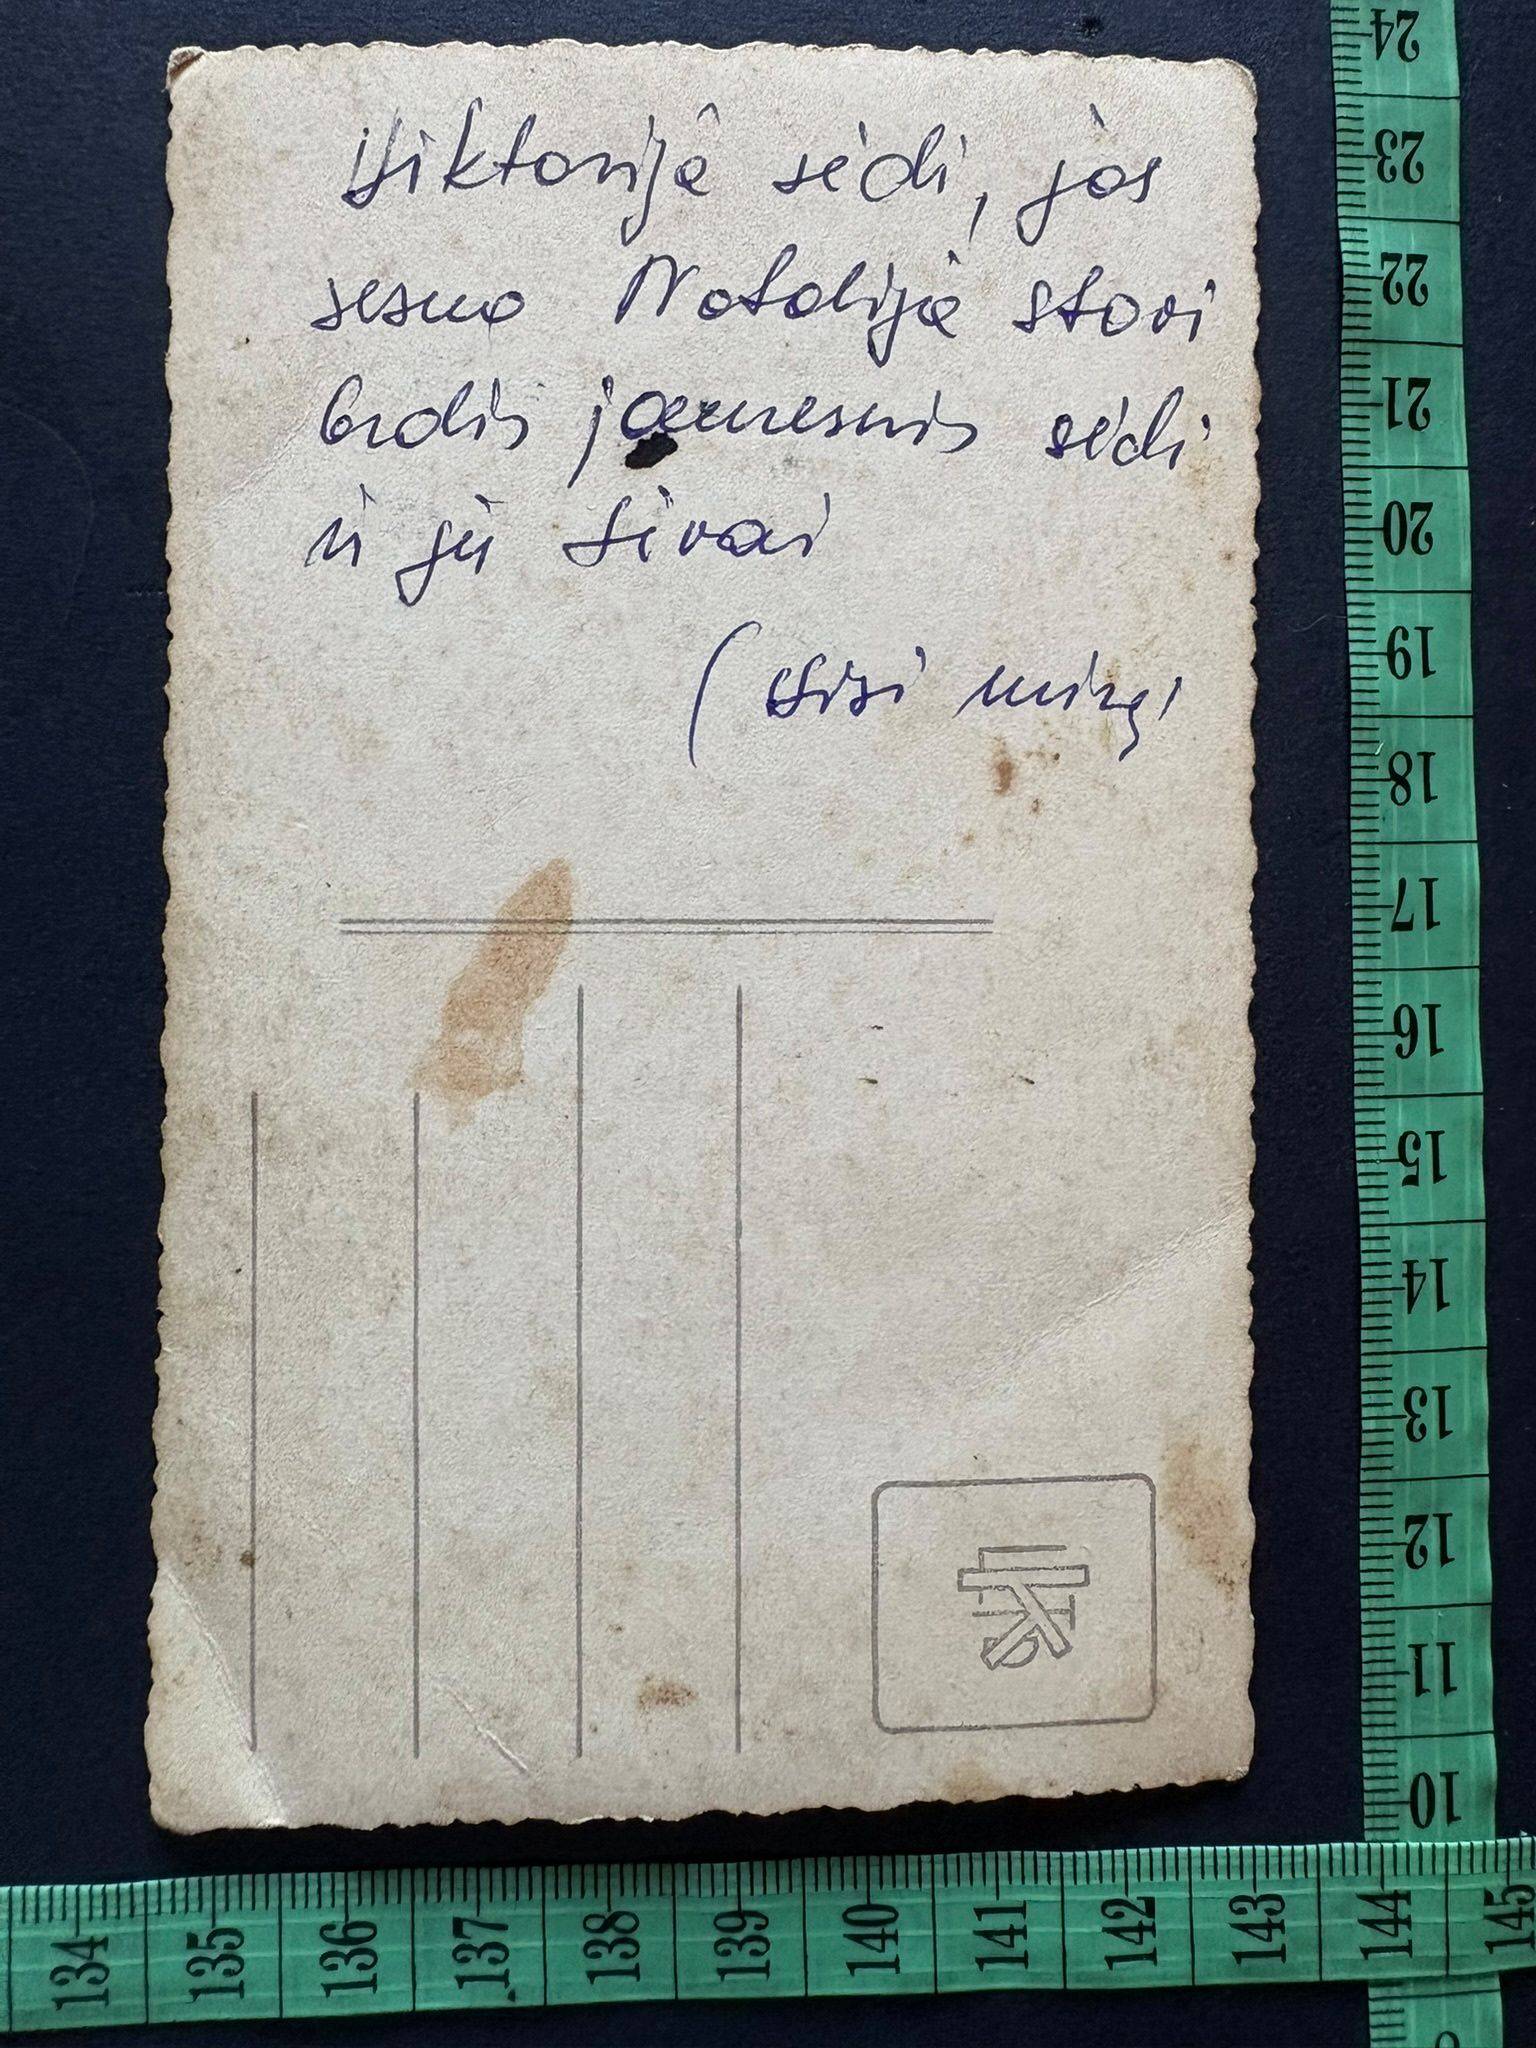 Viktorija sėdi, jos
sesuo Natalija stovi
brolis jaunesnis sėdi
ir jų tėvai
(visi mirę
24
23
22
21
20
19
18
17
16
15
14
13
12
11
10
134 135 136 137 138 139 140 141 142 143 144 145